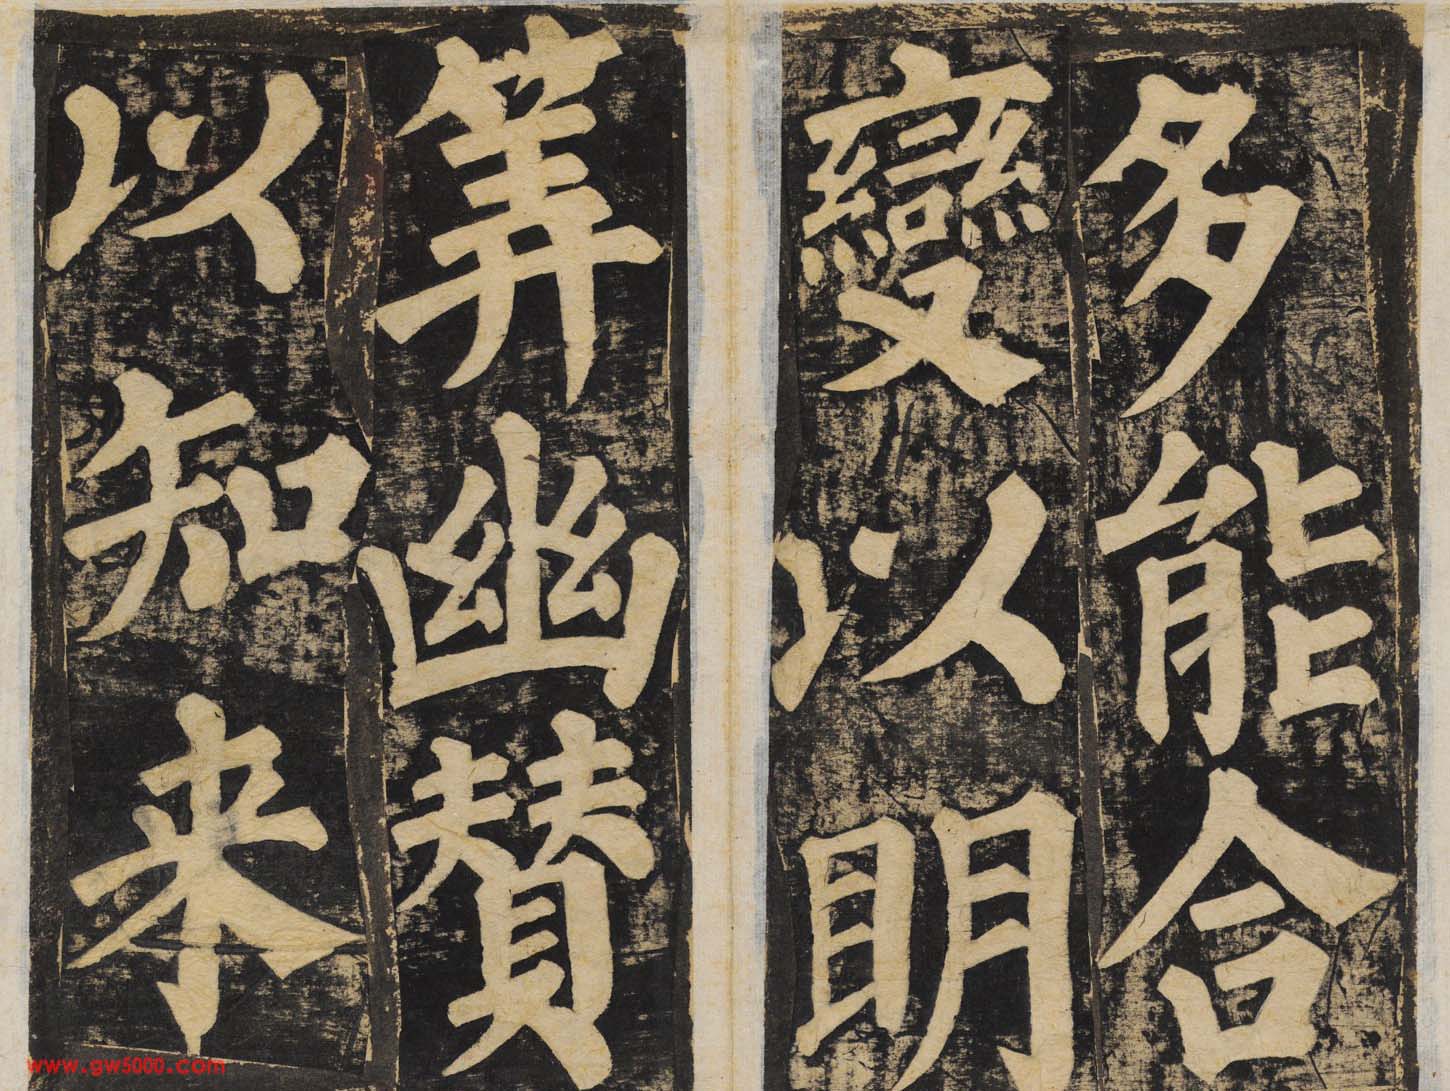 多能合
變以明
筭幽贊
以知来
www.gw5000.com